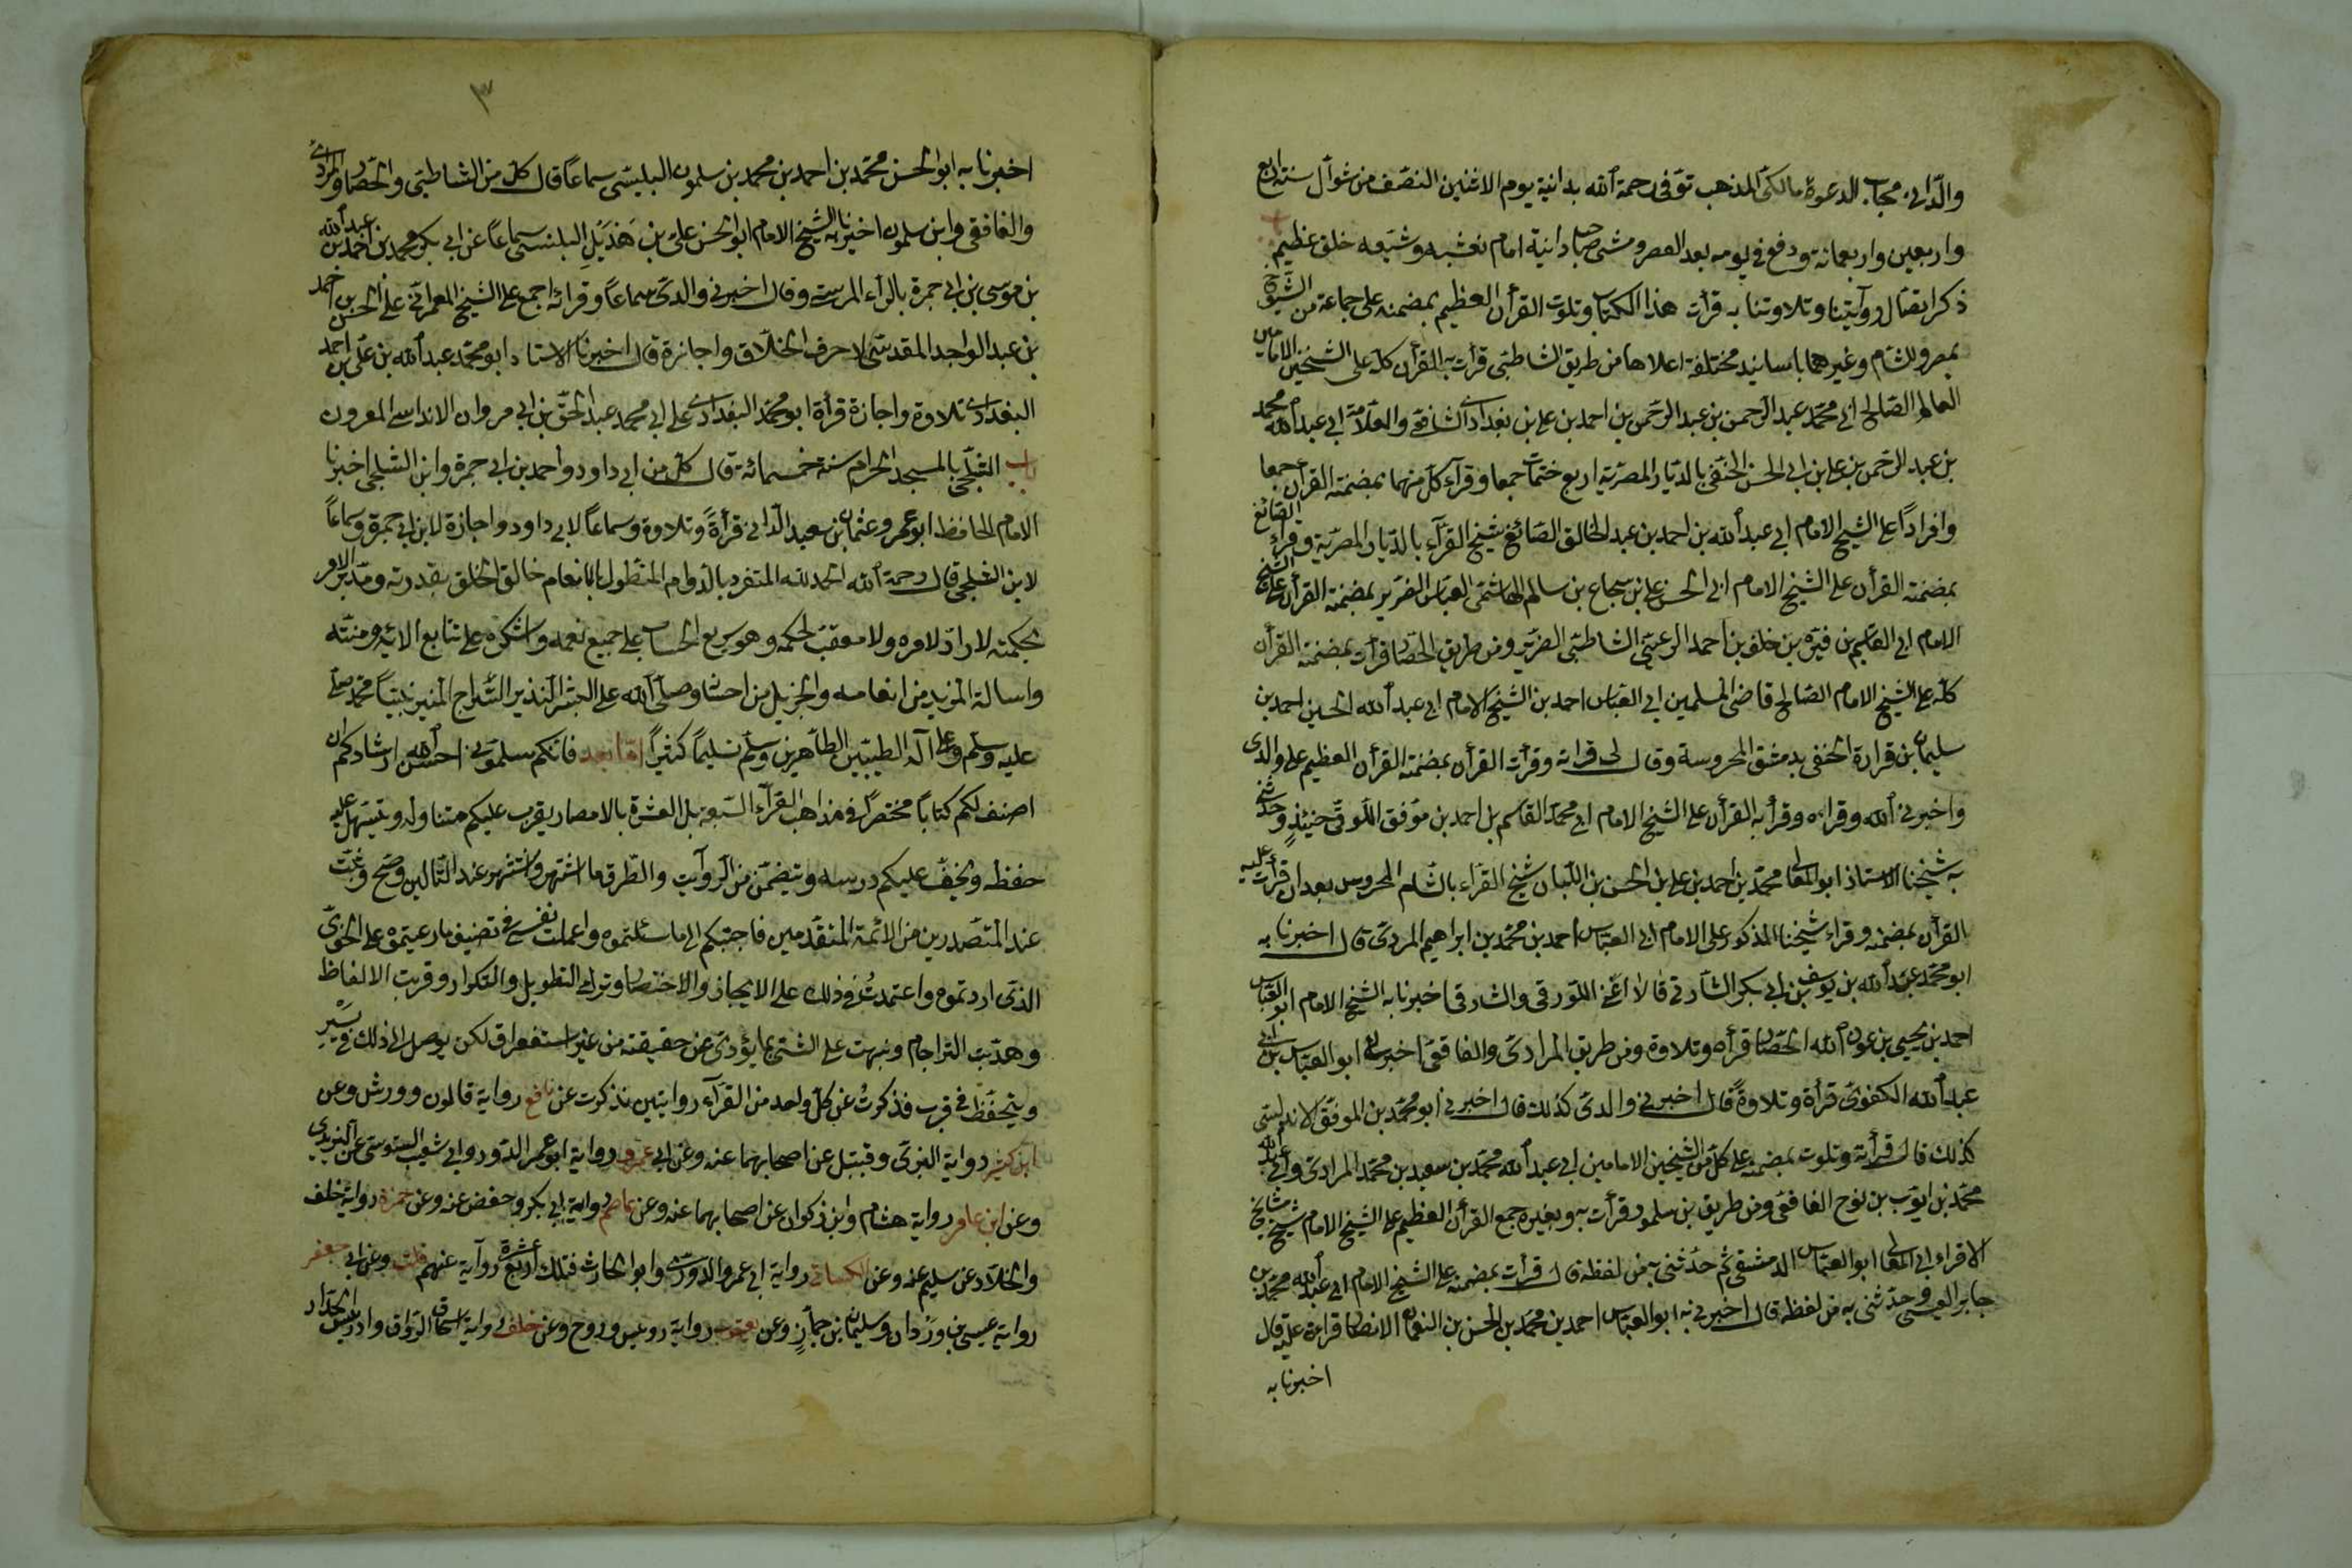 والدانى مجاب الدعوة مالكى المذهب توفى رحمة الله بدانية يوم الاثنين النصف من شوال سنة اربع
واربعين واربعمائة ودفع فى يومه بعد العصر ومشى صاحب دانية امام نعشه وشيعه خلق عظيم
ذكر اتصال روآيتنا وتلاوتنا به قرأت هذا الكتاب وتلوت القرآن العظيم بمضمنه على جماعة من الشيوخ
بمصر والشام وغيرهما باسانيد مختلفة اعلاها من طريق الشاطبى قرأت به القرأن كله على الشيخين الامامين
العالم الصالح ابى محمد عبد الرحمن بن عبد الرحمن بن احمد بن على بن بغدادى الشافعى والعلامة ابى عبد الله محمد
بن عبد الرحمن بن على بن ابى الحسن الحنفى بالديار المصرية اربع ختمات جمعا وقرآء كل منهما بمضمنه القرأن جمعا
وافرادا على الشيخ الامام ابى عبد الله بن احمد بن عبد الخالق الصائغ شيخ القرآء بالديار المصرية وقرأ الصائغ
بمضمنه القرأن على الشيخ الامام ابى الحسن على بن شجاع بن سالم الهاشمى العباس الضرير بمضمنه القرأن على الشيخ
الامام ابى القسم بن فيره بن خلف بن احمد الرعينى الشاطبى الضرير ومن طريق الحصار قرأت بمضمنه القرأن
كله على الشيخ الامام الصالح قاضى المسلمين ابى العباس احمد بن الشيخ الامام ابى عبد الله الحسين احمد بن
سليمان بن قرارة الحنفى بدمشق المحروسة وقال لى قراته وقرأت القرأن بمضمنه القرأن العظيم على والدى
واخبرنى الله وقراءه وقرأ به القرأن على الشيخ الامام ابى محمد القاسم بن احمد بن موفق اللوقى حنينذ وحدثنى
به شيخنا الاستاذ ابو المعالى محمد بن احمد بن على بن الحسن بن اللبان شيخ القراء بالشام المحروس بعد ان قرأت عليه
القرآن بمضمنه وقراء شيخنا المذكور على الامام ابى العباس احمد بن محمد بن ابراهيم المردى قال اخبرنا به
ابو محمد عبد الله بن يوسف بن ابى بكر الشارفى قالا اعنى اللورقى والشارقى اخبرنا به الشيخ الامام ابو العباس
احمد بن يحيى بن عون الله الحصار قرأه وتلاوة ومن طريق المرادى والغافقى اخبرنى ابو العباس بن ابى
عبد الله الكفوى قرأة وتلاوة قال اخبرنى والدى كذلك قال اخبرنى ابو محمد بن الموفق الاندلسى
كذلك قال قرأته وتلوت بمضمنه على كل من الشيخين الامامين ابى عبد الله محمد بن سعيد بن محمد المرادى وابى عبد الله
محمد بن ايوب بن نوح الغافقى ومن طريق بن سلمون قرأت به وبغيره جمع القرأن العظيم على الشيخ الامام شيخ مشايخ
الاقراء ابى المعالى ابو العباس الدمشقى ثم حدثنى به من لفظه قال قرأت بمضمنه على الشيخ الامام ابى عبد الله محمد بن
جابر القيسى وحدثنى به من لفظه قال اخبرنى به ابو العباس احمد بن محمد بن الحسن بن النعمان الانصار قراءة عليه قال
اخبرنا به
٣
اخبرنا به ابو الحسن محمد بن احمد بن محمد بن سلمون البلنسى سماعا قال كل من الشاطبى والحصار والمرادى
والغافقى وابن سلمون اخبرنا به الشيخ الامام ابو الحسن على بن هذيل البلنسى سماعا عن ابى بكر محمد بن احمد بن عبد الله
بن موسى بن ابى حمرة بالراء المرسى وقال اخبرنى والدى سماعا وقرائه اجمع على الشيخ المعرانى على الحسن بن احمد
بن عبد الواحد المقدسى لاحرف الخلاق واجازة قال اخبرنا الاستاد ابو محمد عبد الله بن على بن احمد
البغدادى تلاوة واجازة قرأة ابو محمد البغدادى على ابى محمد عبد الحق بن ابى مروان الاندلسى المعروف
باب الثلجى بالمسجد الحرام سنة خمسمائة قال كل من ابى داود واحمد بن ابى حمرة وابن الثلجى اخبرنا
الامام الحافظ ابو عمرو عثمان بن سعيد الدانى قرأة وتلاوة وسماعا لابى داود واجازة لابن ابى حمرة وسماعا
لابن الثلجى قال رحمة الله الحمد لله المتفرد بالدوام المتطول بالانعام خالق الخلق بقدرته ومدبر الامر
بحكمته لا راد لامره ولا معقب لحكمه وهو سريع الحساب على جميع نعمه واشكره على تتابع الائه ومنته
واساله المزيد من انعامه والجزيل من احسانه وصلى الله على البشير النذير السراج المنير نبينا محمد صلى
عليه وسلم وعلى آله الطيبين الطاهرين وسلم تسليما كثيرا اما بعد فانكم سلمونى احسن الله ارشادكم ان
اصنف لكم كتابا مختصرا فى مذاهب القرآء السبعة بل العشرة بالامصار يقرب عليكم متناوله ويتسهل عليه
حفظه ويخف عليكم درسه ويتضمن من الروآيت والطرق ما اشتهر وانتشر عند التالين وصح وثبت
عند المتصدرين من الائمة المتقدمين فاجبتكم الى ما سئلتموه واعملت نفسى فى تصنيف ما رغبتموه على النحو
الذى اردتموه واعتمدت فى ذلك على الايجاز والاختصار وترك التطويل والتكرار وقربت الالفاظ
وهذبت التراجم ونبهت على الشئ بما يؤدى عن حقيقته من غير استغراق لكى يوصل الى ذلك فى يسير
ويتحفظ فى قرب فذكرت عن كل واحد من القرآء روايتين فذكرت عن نافع رواية قالون وورش وعن
ابن كثير رواية البزى وقنبل عن اصحابهما عنه وعن ابى عمرو رواية ابو عمر الدورو وابى شعيب السوسى عن اليزيدى
وعن ابن عامر رواية هشام وابن ذكوان عن اصحابهما عنه وعن عاصم رواية ابى بكر وحفص عنه وعن حمزة رواية خلف
والخلاد عن سليم عنه وعن الكسائى رواية ابى عمر والدورى وابو الحارث فتلك اربع عشرة روآية عنهم قلت وعن ابى جعفر
رواية عيسى بن وردان وسليمان بن جماز وعن يعقوب رواية رويس وروح وعن خلف رواية اسحاق الوراق وادريس الحداد